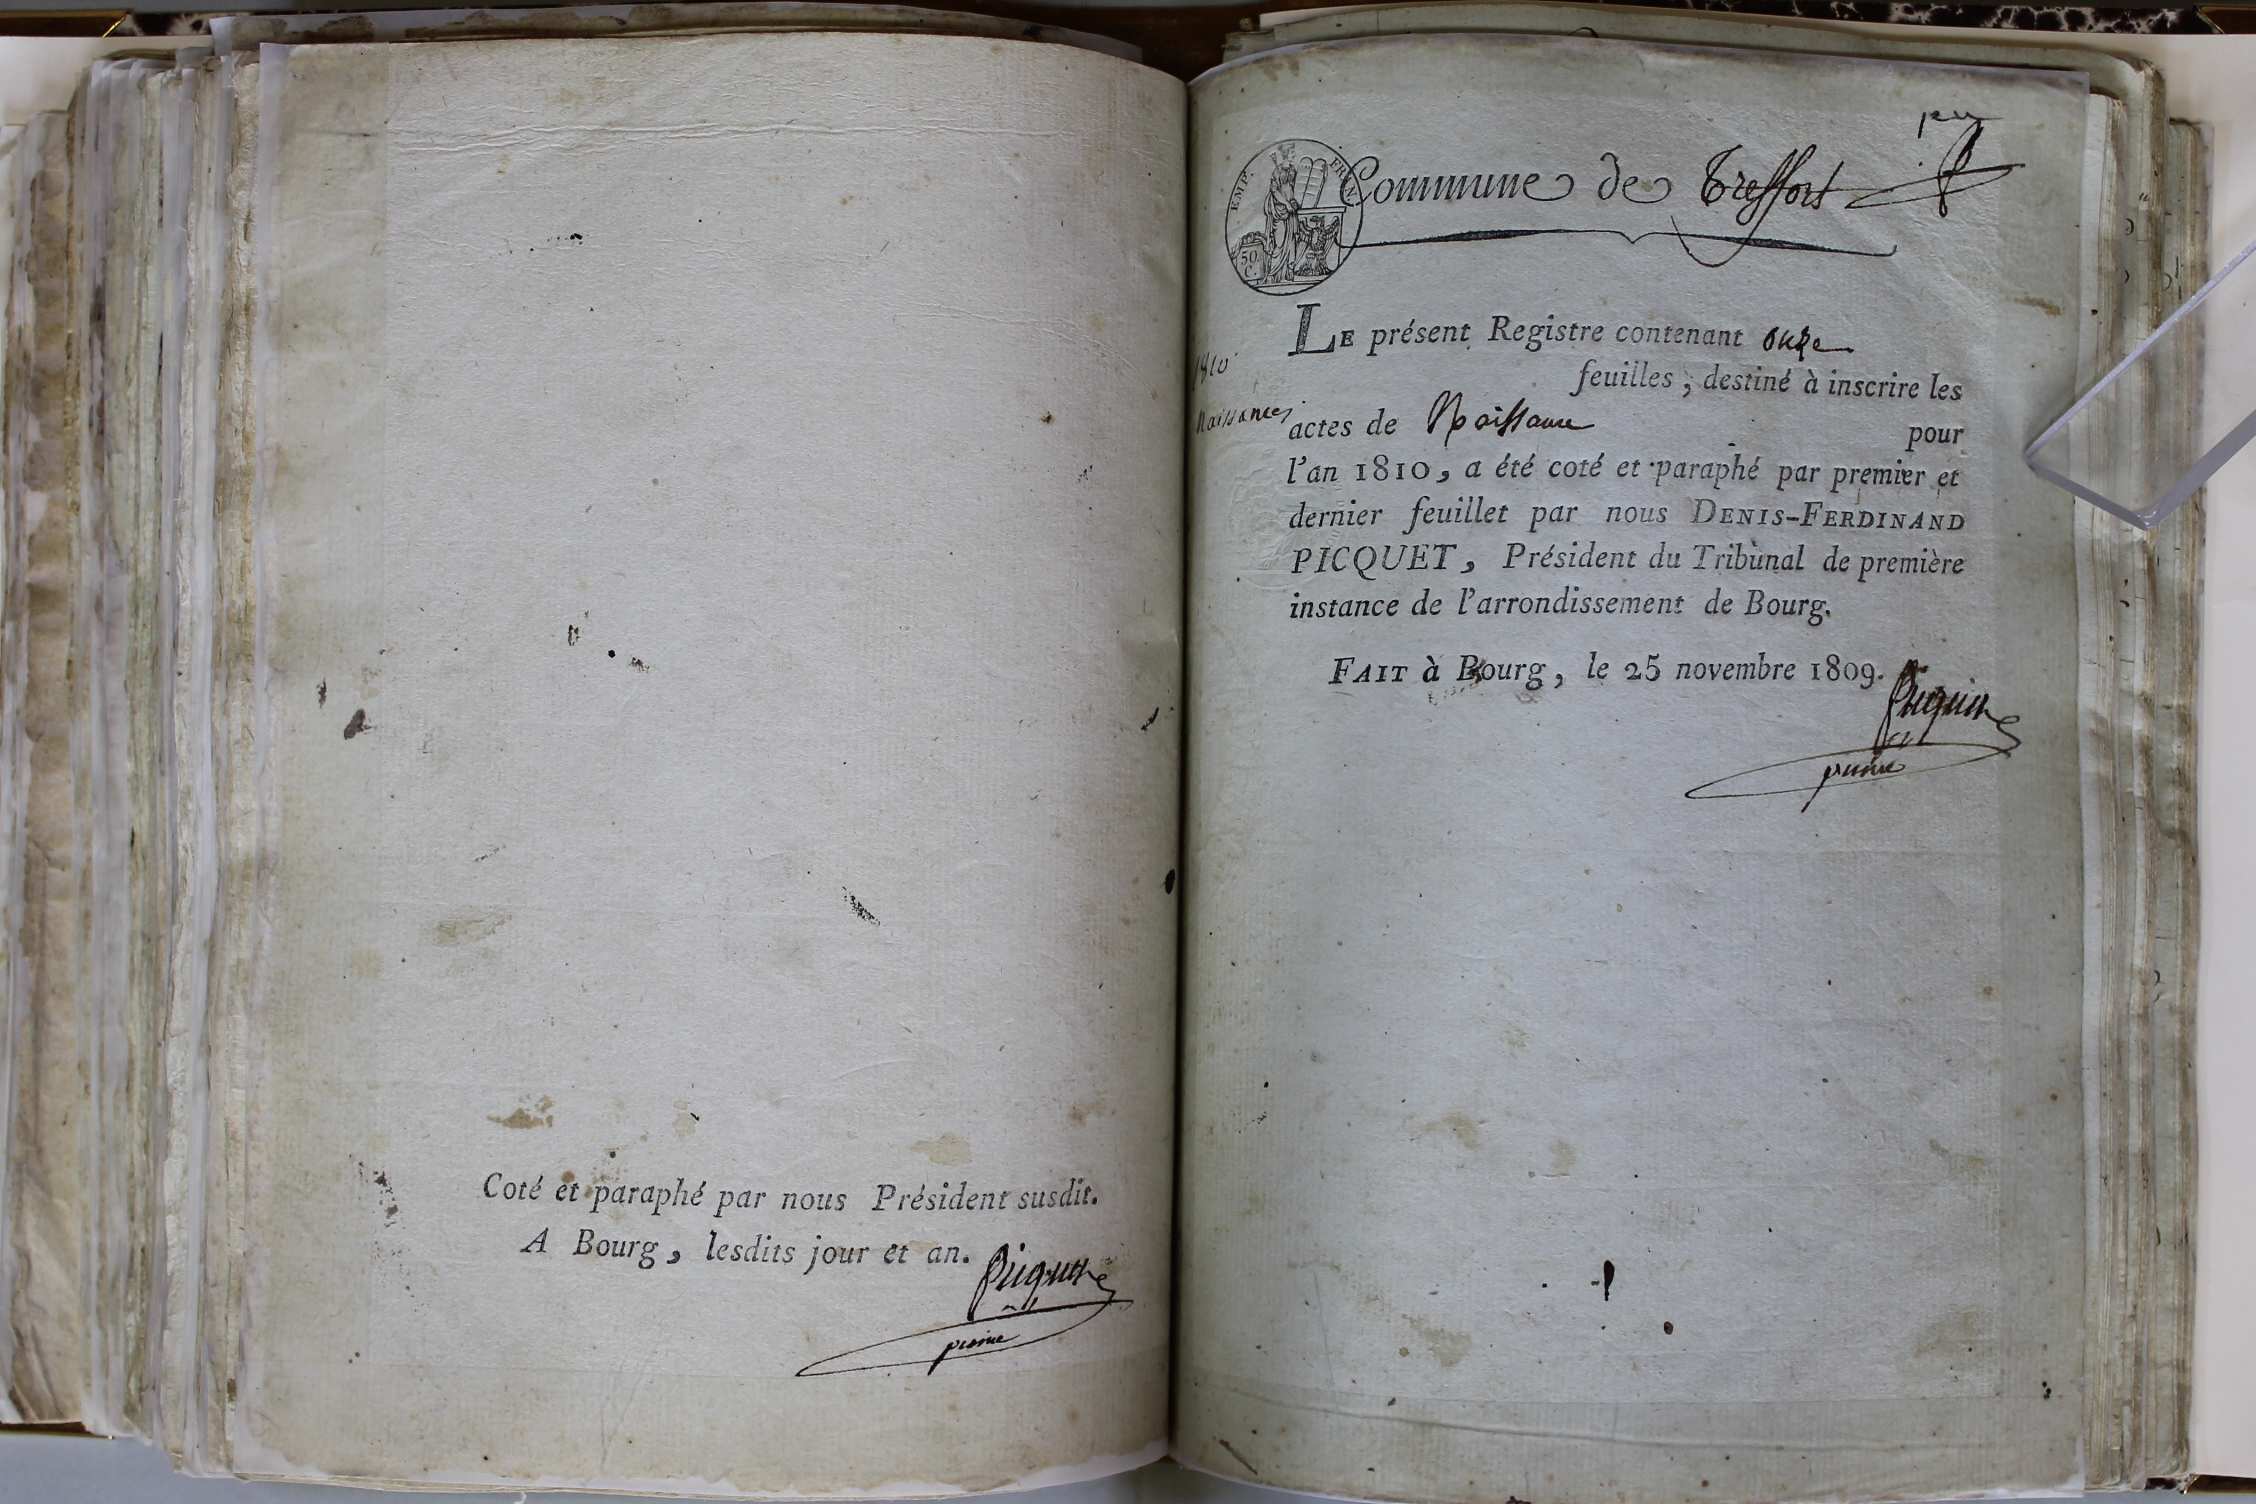 Coté et paraphé par nous Président susdit.
A Bourg, lesdits jour et an.
Picquet
prime
1er
EMP. FRAN.
50
C.
Commune de Treffort
LE présent Registre contenant onze
feuilles, destiné à inscrire les
1810
Naissances
actes de Naissance pour
l'an 1810, a été coté et paraphé par premier et
dernier feuillet par nous DENIS-FERDINAND
PICQUET, Président du Tribunal de première
instance de l'arrondissement de Bourg.
FAIT à Bourg, le 25 novembre 1809.
Picquet